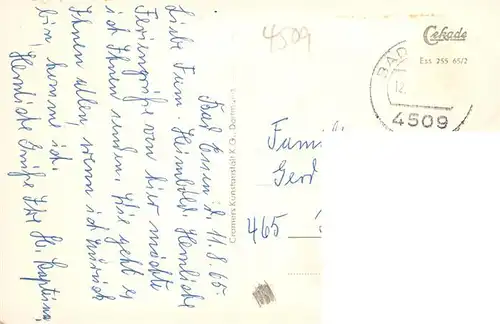 Bad Essen, d. 11.8.65.
Liebe Fam. Heimbold! Herzliche
Feriengrüße von hier möchte
ich Ihnen senden. Wie geht es
Ihnen allen, wenn ich zurück
bin, komme ich.
Herzliche Grüße Ihr H.
Cramers Kunstanstalt K.G., Dortmund
4509
Cekade
Ess 255 65/2
BAD
12.
4509
Fam
Gerd
465